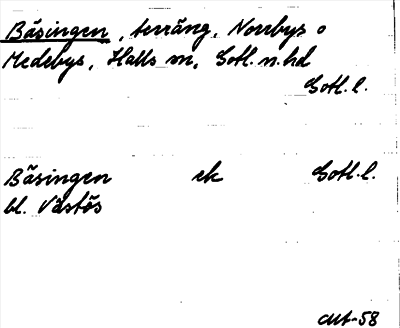 Bäsingen, terräng, Norrbys o
Medebys, Halls sn, Gotl. n. hd
Gotl. l.
Bäsingen ek Gotl. l.
bl. Västös
-58